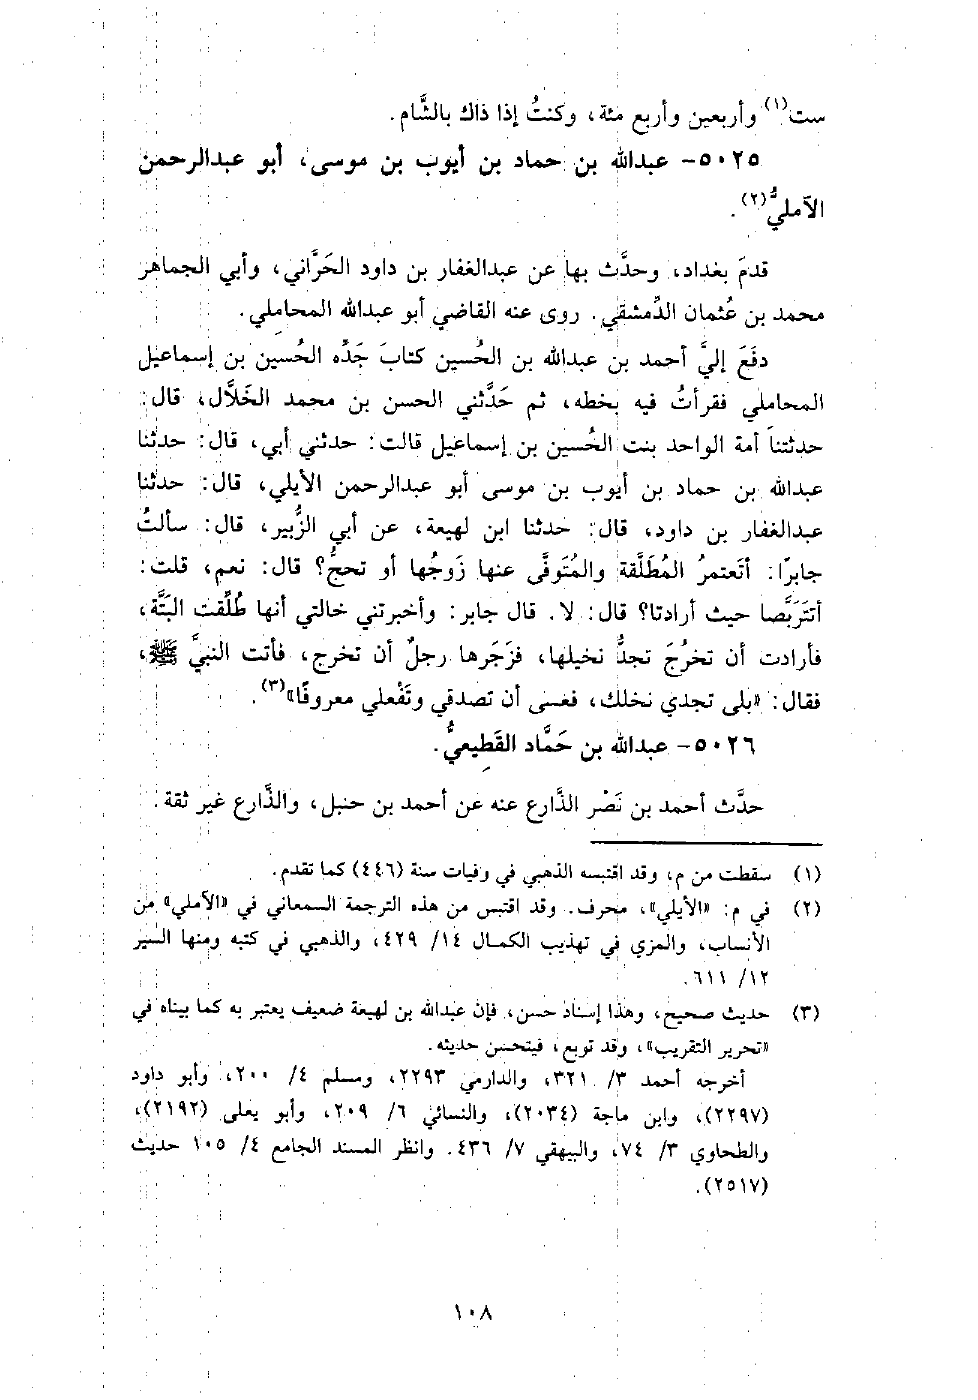 ست(١) وأربعين وأربع مئة، وكنتُ إذا ذاك بالشَّام.
٥٠٢٥- عبدالله بن حماد بن أيوب بن موسى، أبو عبدالرحمن
الآمليُّ(٢).
قدمَ بغداد، وحدَّث بها عن عبدالغفار بن داود الحَرَّاني، وأبي الجماهر
محمد بن عُثمان الدِّمشقي. روى عنه القاضي أبو عبدالله المحاملي.
دفَعَ إليَّ أحمد بن عبدالله بن الحُسين كتابَ جَدِّه الحُسين بن إسماعيل
المحاملي فقرأتُ فيه بخطه، ثم حَدَّثني الحسن بن محمد الخَلَّال، قال:
حدثتنا أمة الواحد بنت الحُسين بن إسماعيل قالت: حدثني أبي، قال: حدثنا
عبدالله بن حماد بن أيوب بن موسى أبو عبدالرحمن الأيلي، قال: حدثنا
عبدالغفار بن داود، قال: حدثنا ابن لهيعة، عن أبي الزُّبير، قال: سألتُ
جابرًا: أتَعتمرُ المُطَلَّقة والمُتَوفَّى عنها زَوجُها أو تحجُّ؟ قال: نعم، قلت:
أتتَرَبَّصا حيث أرادتا؟ قال: لا. قال جابر: وأخبرتني خالتي أنها طُلِّقت البَتَّة،
فأرادت أن تخرُجَ تجدُّ نخيلها، فزَجَرها رجلٌ أن تخرج، فأتت النبيَّ ﷺ،
فقال: «بلى تجدي نخلك، فعسى أن تصدقي وتَفْعلي معروفًا»(٣).
٥٠٢٦- عبدالله بن حَمَّاد القَطِيعيُّ.
حدَّث أحمد بن نَصْر الذَّارع عنه عن أحمد بن حنبل، والذَّارع غير ثقة.
(١) سقطت من م، وقد اقتبسه الذهبي في وفيات سنة (٤٤٦) كما تقدم.
(٢) في م: «الأيلي»، محرف. وقد اقتبس من هذه الترجمة السمعاني في «الآملي» من
الأنساب، والمزي في تهذيب الكمال ١٤/ ٤٢٩، والذهبي في كتبه ومنها السير
١٢/ ٦١١.
(٣) حديث صحيح، وهذا إسناد حسن، فإن عبدالله بن لهيعة ضعيف يعتبر به كما بيناه في
«تحرير التقريب»، وقد توبع، فيتحسن حديثه.
أخرجه أحمد ٣/ ٣٢١، والدارمي ٢٢٩٣، ومسلم ٤/ ٢٠٠، وأبو داود
(٢٢٩٧)، وابن ماجة (٢٠٣٤)، والنسائي ٦/ ٢٠٩، وأبو يعلى (٢١٩٢)،
والطحاوي ٣/ ٧٤، والبيهقي ٧/ ٤٣٦. وانظر المسند الجامع ٤/ ١٠٥ حديث
(٢٥١٧).
١٠٨